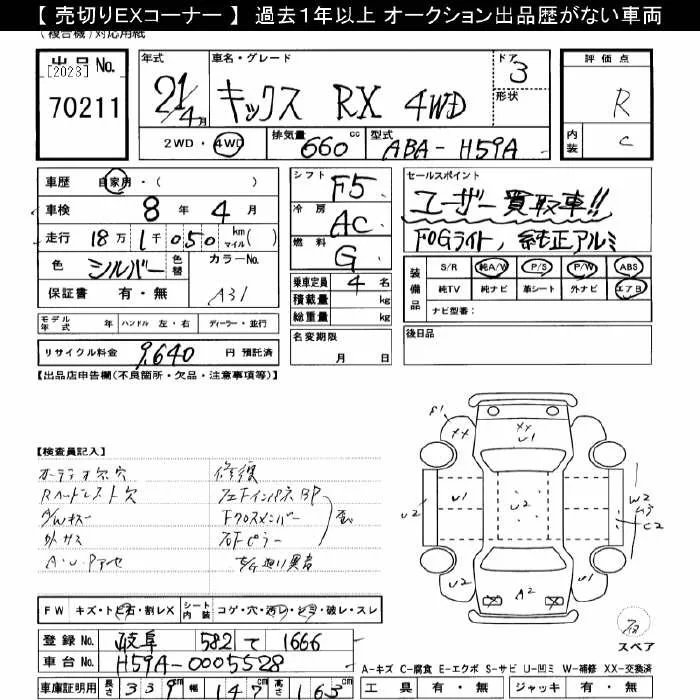 【 売切りEXコーナー 】 過去1年以上 オークション出品歴がない車両
(複合機)対応用紙
出品 No.
[2023]
70211
年式
21/4月
車名・グレード
キックス RX 4WD
ドア
3
形状
評価点
R
内装
C
2WD・4WD
排気量 660 cc
型式 ABA-H59A
車歴 自家用・( )
車検 8年 4月
走行 18万 1千 050 km マイル( )
色 シルバー 色替
カラーNo.
A31
保証書 有・無
シフト F5
冷房 AC
燃料 G
乗車定員 4 名
積載量 kg
総重量 kg
セールスポイント
ユーザー買取車!!
FOGライト, 純正アルミ
装備品
S/R 純A/W P/S P/W ABS
純TV 純ナビ 革シート 外ナビ エアB
ナビ型番:
モデル年式 年 ハンドル 左・右 ディーラー・並行
名変期限
月 日
後日品
リサイクル料金 9,640 円 預託済
【出品店申告欄(不良箇所・欠品・注意事項等)】
【検査員記入】
オーディオ欠 穴 修復
Rヘッドレスト欠
A/Wキズ Fクロスメンバー
外 サビ 右Fピラー
F1
XX
XX
U1
U2
U1
U2
U1
W2
C2
U2
A2
U2
スペア
FW キズ・トビ石・割レX
シート内装 コゲ・穴・汚レ・シミ・破レ・スレ
登録 No. 岐阜 582 て 1666
車台 No. H59A-0005528
A-キズ C-腐食 E-エクボ S-サビ U-凹ミ W-補修 XX-交換済
車庫証明用 長さ 339 cm 幅 147 cm 高さ 163 cm
工具 有・無 ジャッキ 有・無